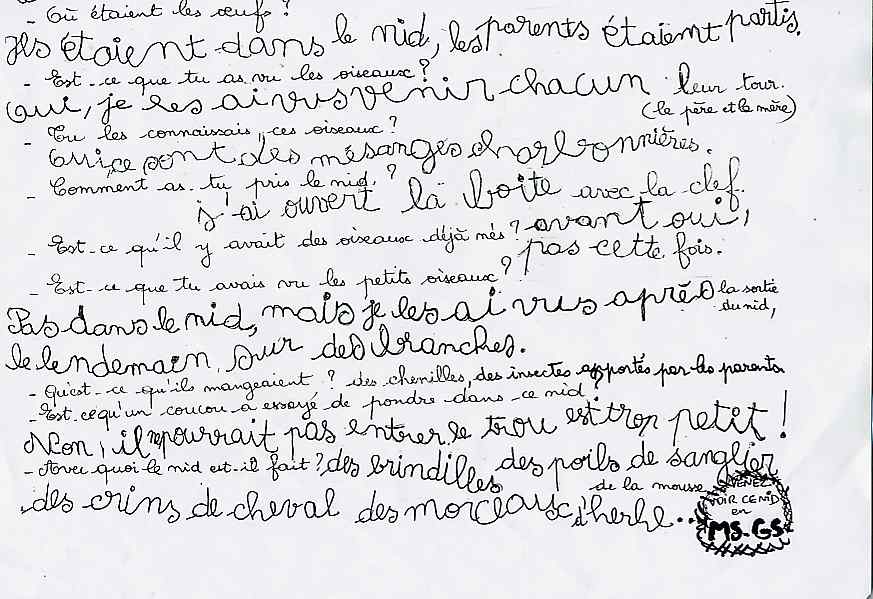 - Où étaient les œufs ?
Ils étaient dans le nid, les parents étaient partis.
- Est-ce que tu as vu les oiseaux ?
Oui, je les ai vus venir chacun leur tour.
(le père et la mère)
- Tu les connaissais, ces oiseaux ?
Oui, ce sont des mésanges charbonnières.
- Comment as-tu pris le nid ?
j'ai ouvert la boite avec la clef.
- Est-ce qu'il y avait des oiseaux déjà nés ? avant oui,
pas cette fois.
- Est-ce que tu avais vu les petits oiseaux ?
Pas dans le nid, mais je les ai vus après la sortie
du nid,
le lendemain, sur des branches.
- Qu'est-ce qu'ils mangeaient ? des chenilles, des insectes apportés par les parents
- Est-ce qu'un coucou a essayé de pondre dans ce nid ?
Non, il ne pourrait pas entrer le trou est trop petit !
- Avec quoi le nid est-il fait ? des brindilles des poils de sanglier
de la mousse
des crins de cheval des morceaux d'herbe...
VENEZ
VOIR CE NID
en
MS-GS